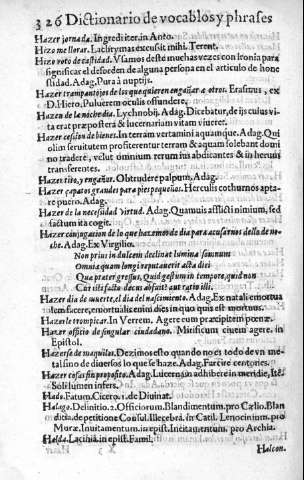 326 Dictionario de vocablos y phrases
Hazer jornada. Ingredi iter in Anto.
Hizo me llorar. Lachrymas excussit mihi. Terent.
Hizo voto de castidad. Vsamos deste muchas vezes con Ironia para
significar el desorden de alguna persona en el articulo de hone
stidad. Adag. Pura à nuptijs.
Hazer trampantojos de los que quieren engañar a otros. Erasmus, ex
D. Hiero. Puluerem oculis offundere.
Hazen de la noche dia. Lychnobij. Adag. Dicebatur, de ijs culus vi-
ta erat præpostera & lucernarum vitam viuere.
Hazer cession de bienes. In terram vertamini aquamque. Adag. Qui
olim seruitutem profiterentur terram & aquam solebant domi
no tradere, velut omnium rerum ius abdicantes & in herum
transferentes.
Hazer tiro, y engañar. Obtrudere palpum, Adag.
Hazer çapatos grandes para pies pequeños. Herculis cothurnos apta-
re puero. Adag.
Hazer de la necesidad virtud. Adag. Quamuis afflicti nimium, sed
factum ita cogit.
Hazer conjugacion de lo que hazemos de dia para acusarnos dello de no-
che. Adag. Ex Virgilio.
Non prius in dulcem declinat lumina somnum
Omnia quam longi reputauerit acta diei
Qua prætergressus, Quid gestum in tempore, quid non
Cur isti facto decus abfuit aut ratio illi.
Hazer dia de muerte, el dia del nascimiento. Adag. Ex natali emortua
lem facere, emortualis enim dies in quo quis est mortuus.
Hazerle trompicar. In Verrem. Agere eum præcipitem pœnæ.
Hazer officio de singular ciudadano. Mirificum ciuem agere. in
Epistol.
Hazerse de maquilas. Dezimos esto quando no es todo de vn me-
tal sino de diuersos lo que se haze. Adag. Farcire centones.
Hazer cosas sin proposito. Adag. Lucernam adhibere in meridie, Itē.
Soli lumen infers.
Hado. Fatum. Cicero. 1. de Diuinat.
Halago. Delinitio. 2. Officiorum. Blandimentum. pro Cælio. Blan
ditia. de petitione Consul. Illecebra. in Catil. Lenocinium. pro
Muræ. Inuitamentum. in epist. Incitamentum. pro Archia.
Halda. Lacinia. in epist. Famil.
Halcon.